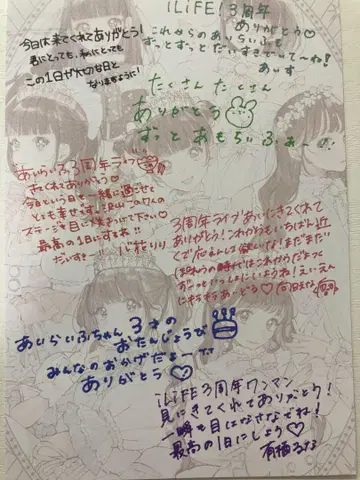 今日は来てくれてありがとう!
君にとっても、私にとっても
この1日が大切な日と
なりますように!
iLiFE! 3周年
ありがとう♡
これからのあいらいふも
ずっとずっとだいすきでいて〜ね!
あいす
たくさん たくさん
ありがとう
ずっと あもらいふぁー!
あいらいふ3周年ライブ
来てくれてありがとう♡
今日という日を一緒に過ごせて
とても幸せです!沢山この7人の
ステージを目に焼きつけて下さい♡
最高の1日にするね!!
だいすきー!! 小花りり
3周年ライブあいにきてくれて
ありがとう!これからもいちばん近
くで
ずーっといっしょにいようね!えいえん
あいらいふちゃん 3才の
おたんじょうび
みんなのおかげだよー
ありがとう♡
iLiFE 3周年ワンマン
見にきてくれてありがとう!
一瞬も目はなさないでね!
最高の1日にしよう♡
有栖るな